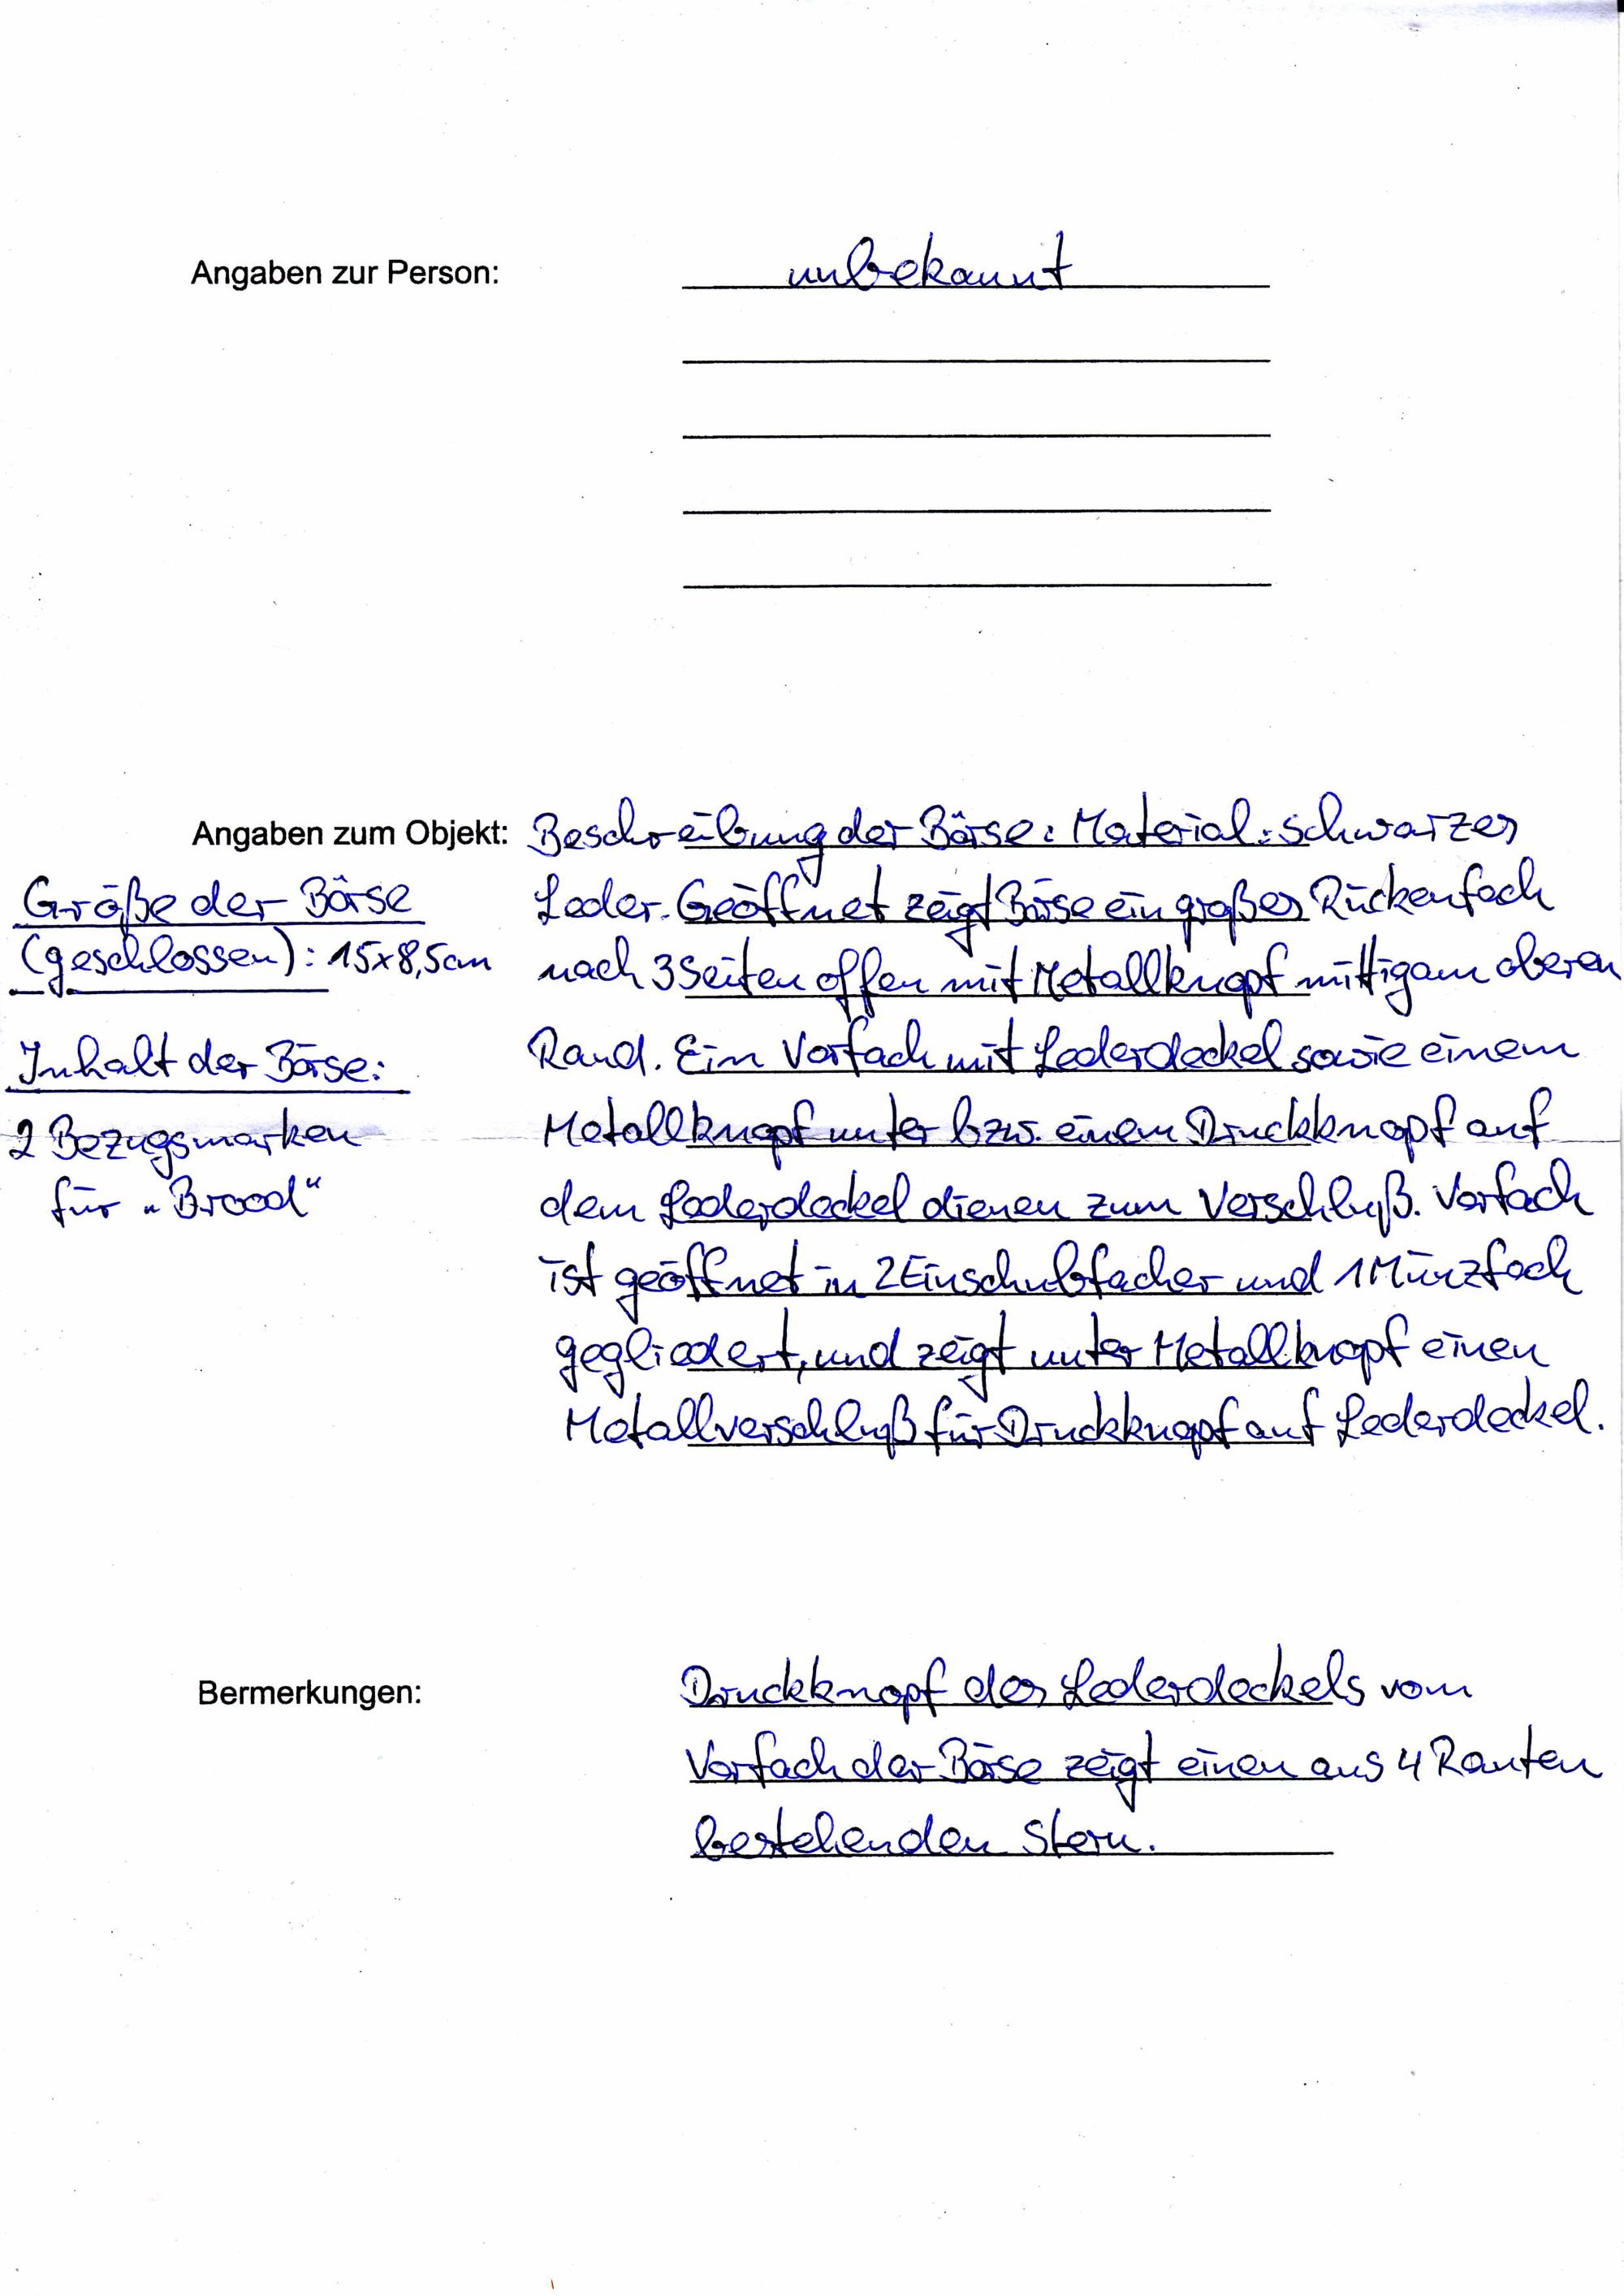 Angaben zur Person: unbekannt
Angaben zum Objekt: Beschreibung der Börse: Material: schwarzes
Leder. Geöffnet zeigt Börse ein großes Rückenfach
nach 3 Seiten offen mit Metallknopf mittig am oberen
Rand. Ein Vorfach mit Lederdeckel sowie einem
Metallknopf unter bzw. einem Druckknopf auf
dem Lederdeckel dienen zum Verschluß. Vorfach
ist geöffnet in 2 Einschubfächer und 1 Münzfach
gegliedert, und zeigt unter Metallknopf einen
Metallverschluß für Druckknopf auf Lederdeckel.
Größe der Börse
(geschlossen): 15x8,5cm
Inhalt der Börse:
2 Bezugsmarken
für „Brood“
Bermerkungen: Druckknopf des Lederdeckels vom
Vorfach der Börse zeigt einen aus 4 Rauten
bestehenden Stern.